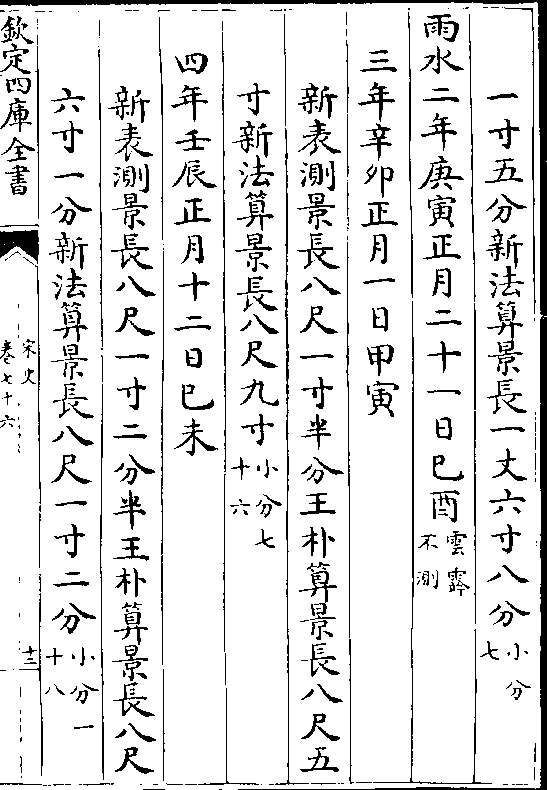 一寸五分新法算景長一丈六寸八分小分
七
雨水二年庚寅正月二十一日巳酉雲霧
不測
三年辛卯正月一日甲寅
新表測景長八尺一寸半分王朴算景長八尺五
寸新法算景長八尺九寸小分七
十六
四年壬辰正月十二日巳未
新表測景長八尺一寸二分半王朴算景長八尺
六寸一分新法算景長八尺一寸二分小分一
十八
欽定四庫全書
宋史
卷七十六
十三